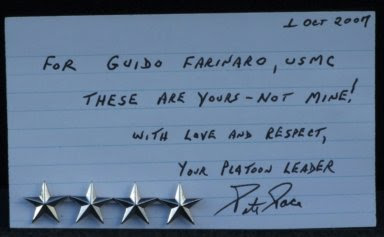 1 OCT 2007
FOR GUIDO FARINARO, USMC
THESE ARE YOURS - NOT MINE!
WITH LOVE AND RESPECT,
YOUR PLATOON LEADER
Pete Pace